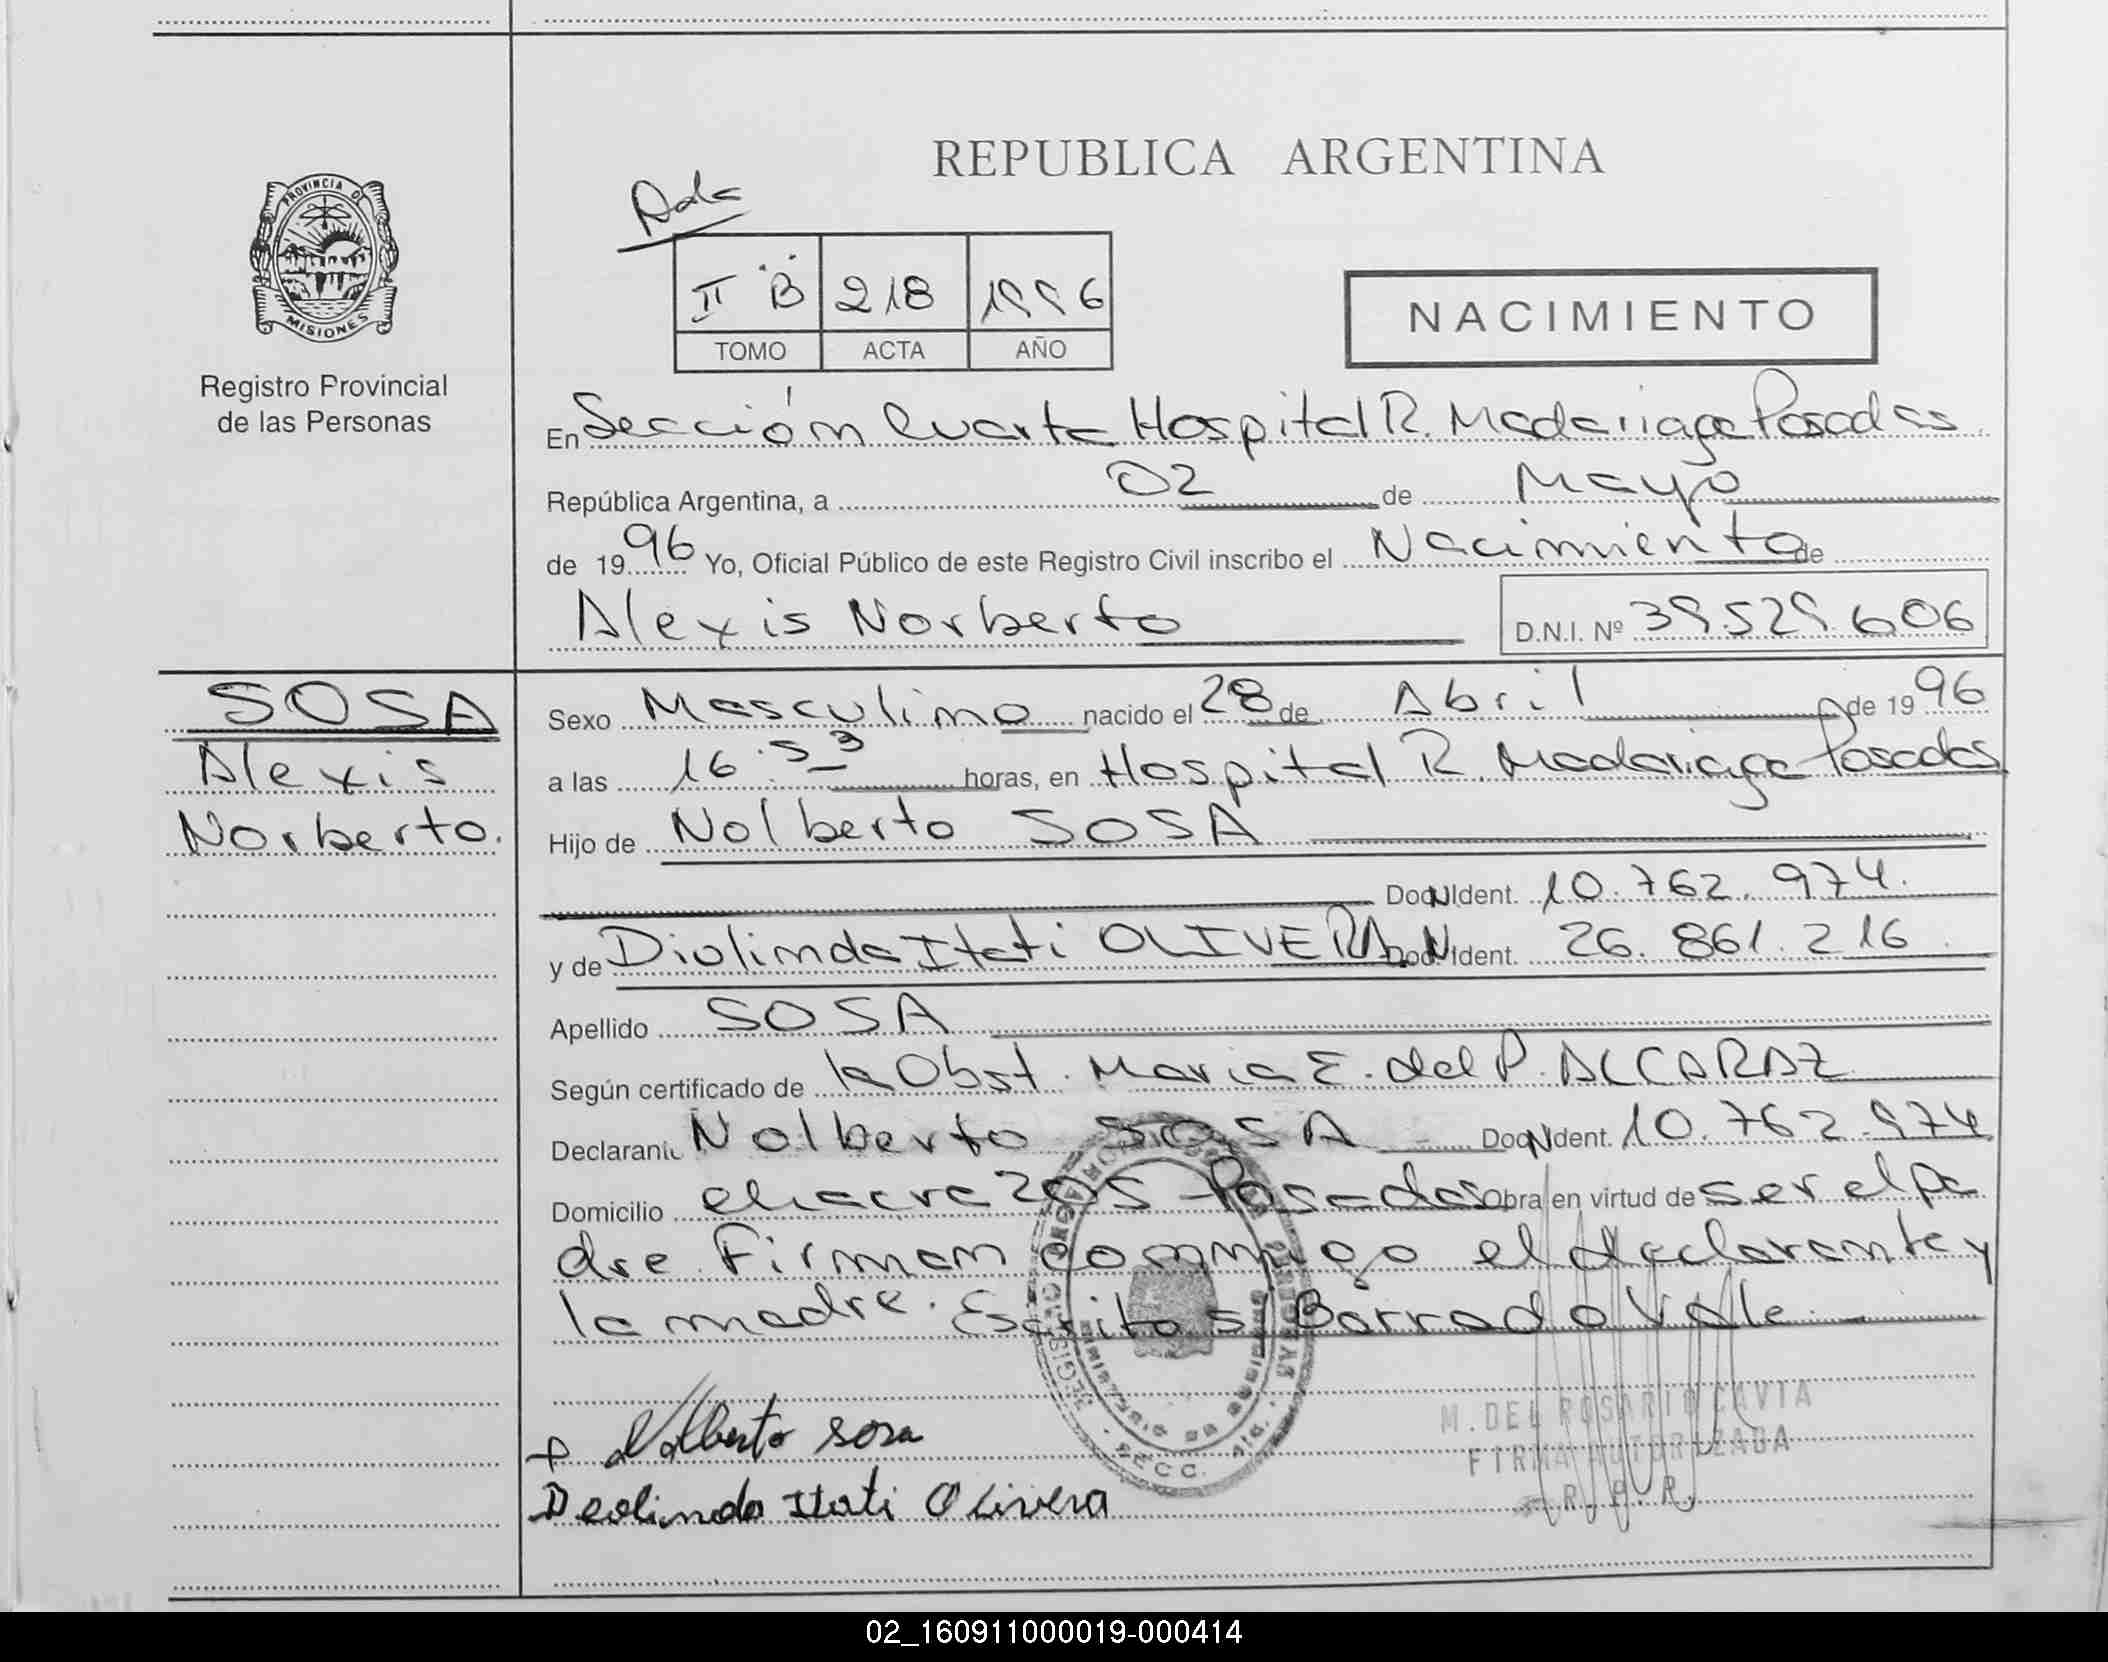 REPUBLICA ARGENTINA
PROVINCIA DE
MISIONES
Registro Provincial
de las Personas
II "B" 218 1996
TOMO ACTA AÑO
NACIMIENTO
En Sección Cuarta Hospital R. Madariaga Posadas
República Argentina, a 02 de Mayo
de 1996 Yo, Oficial Público de este Registro Civil inscribo el Nacimiento de
Alexis Norberto D.N.I. Nº 39.529.606
SOSA
Alexis
Norberto.
Sexo Masculino nacido el 28 de Abril de 1996
a las 16:53 horas, en Hospital R. Madariaga Posadas
Hijo de Nolberto SOSA
Doc N Ident. 10.762.974.
y de Diolinda Itati OLIVERA Doc. N Ident. 26.861.216.
Apellido SOSA
Según certificado de la Obst. Maria E. del P. ALCARAZ
Declarante Nolberto SOSA Doc N Ident. 10.762.974
Domicilio chacra 205 Posadas Obra en virtud de ser el pa
dre. Firman conmigo el declarante y
la madre. Escrito s/ Borrado Vale
Nolberto sosa
Deolinda Itati Olivera
M. DEL ROSARIO CAVIA
FIRMA AUTORIZADA
R. P. R.
02_160911000019-000414